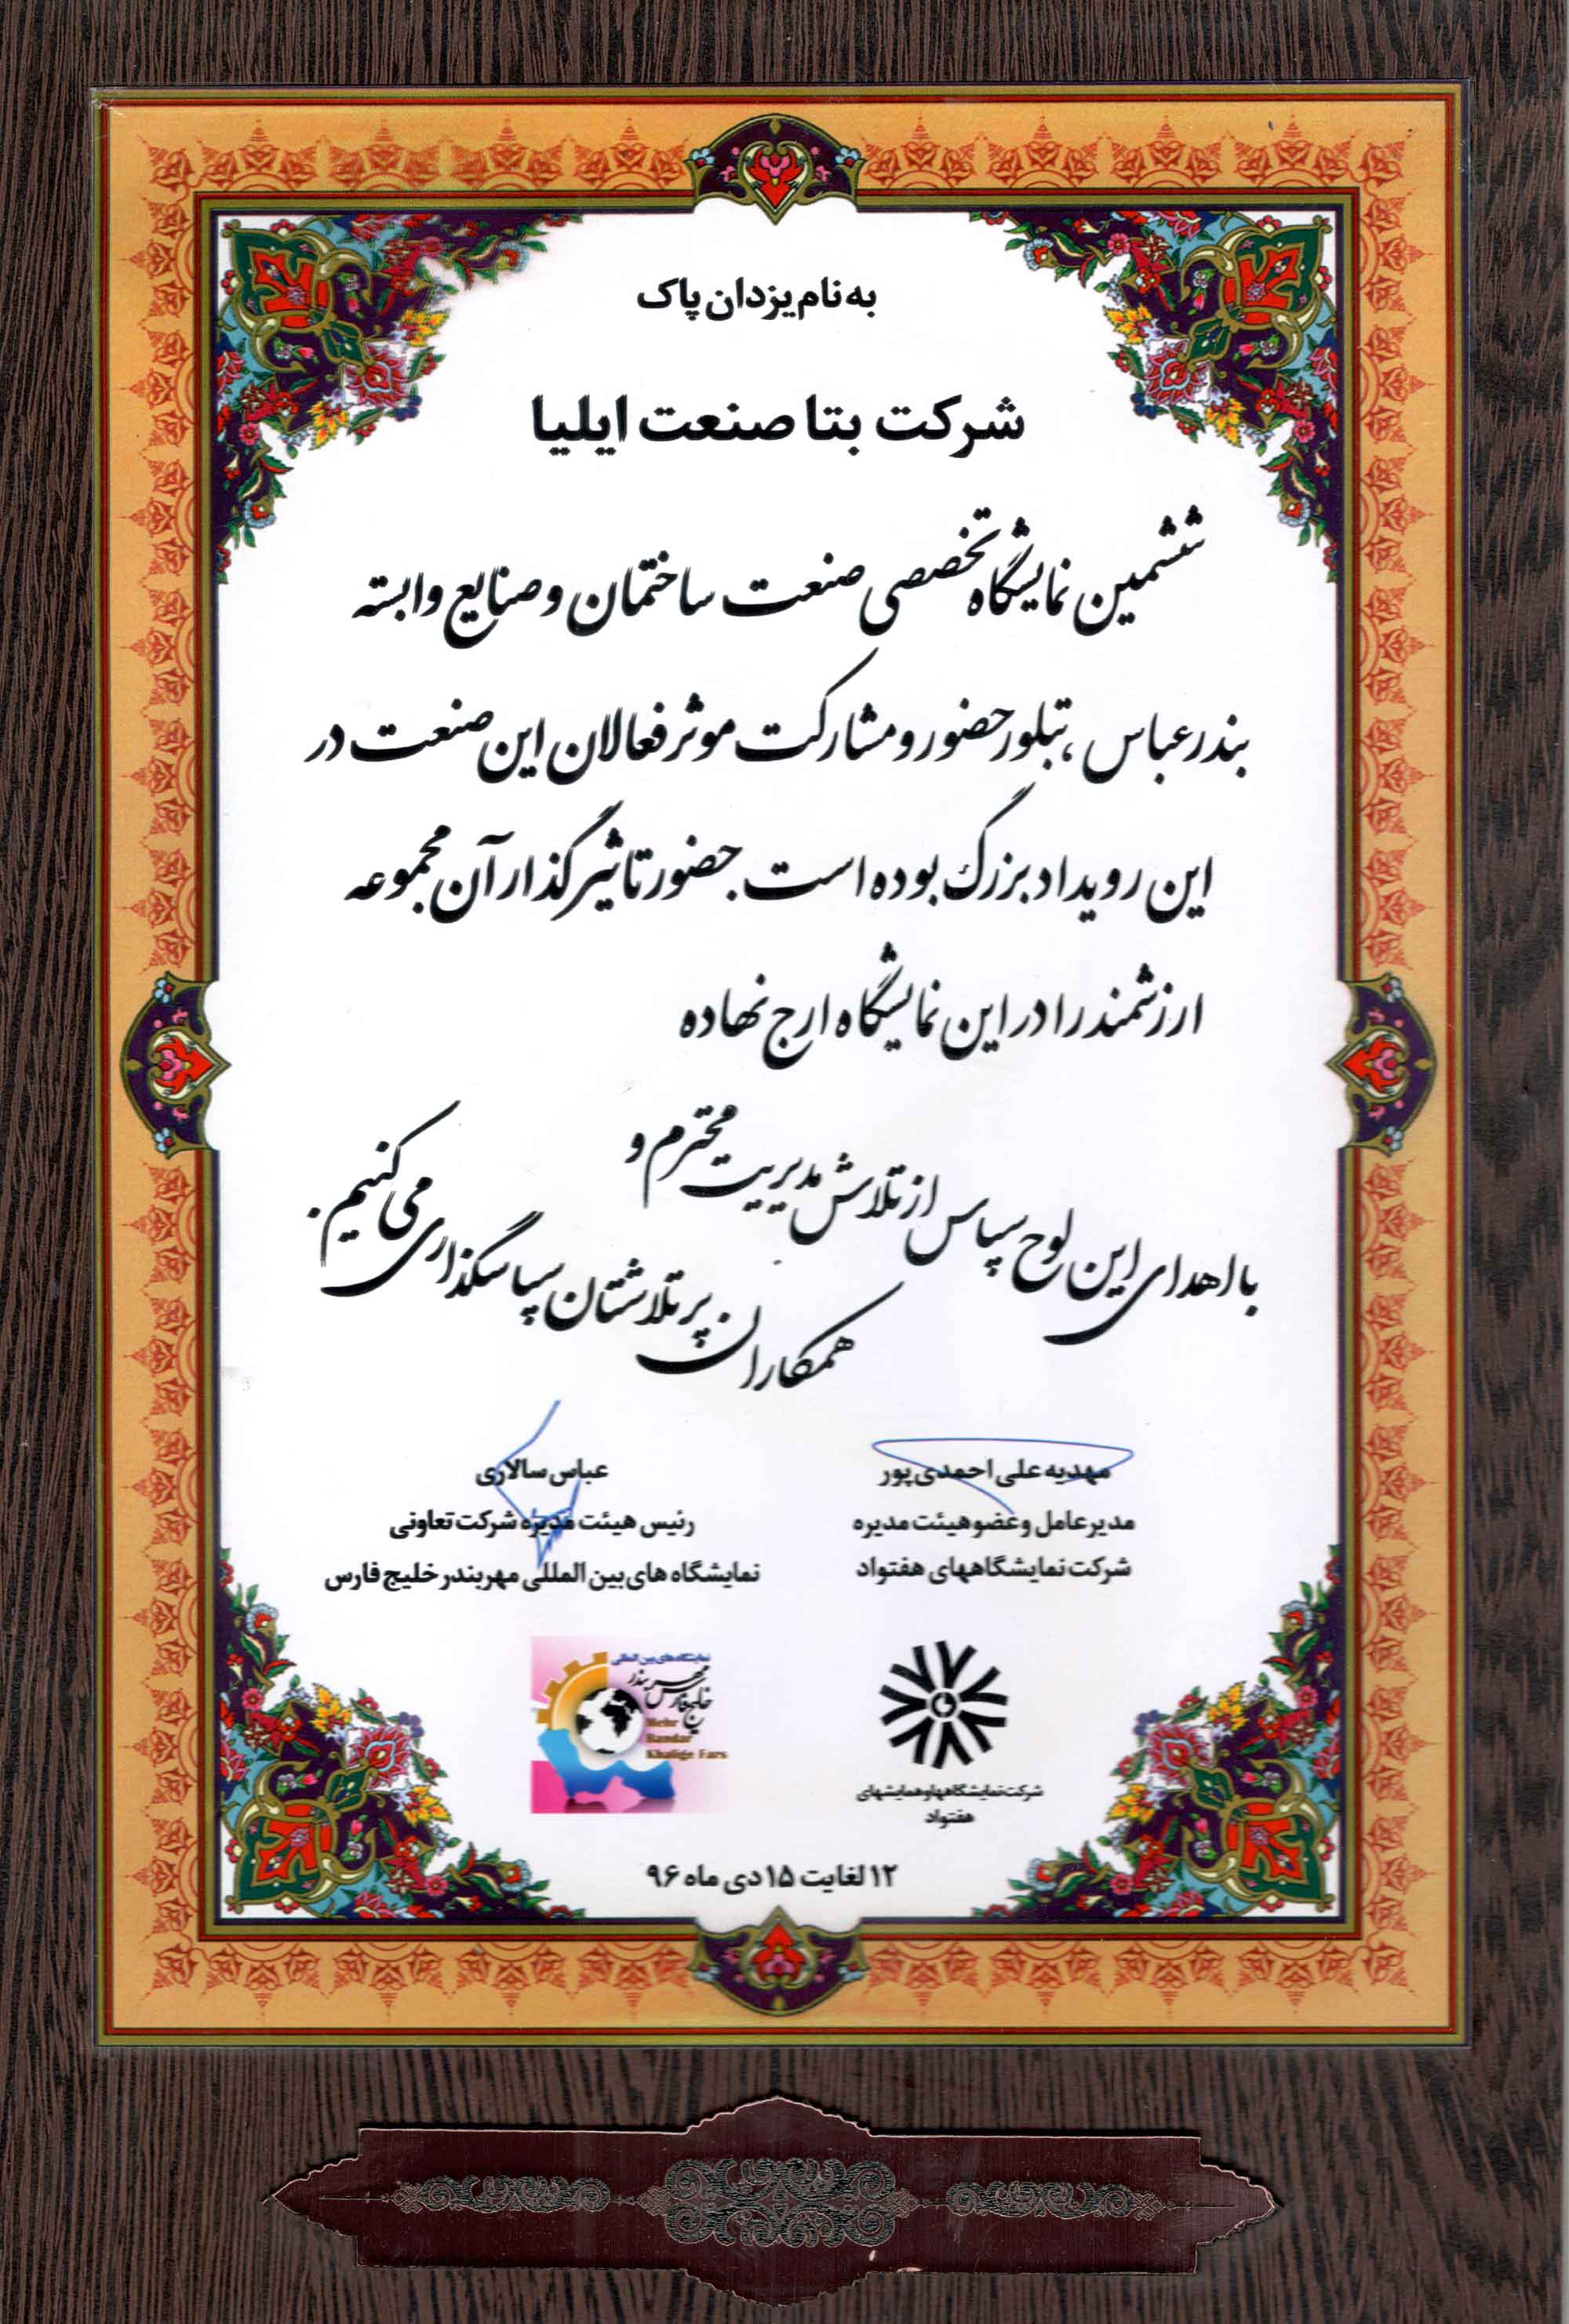 به نام یزدان پاک
شرکت بتا صنعت ایلیا
ششمین نمایشگاه تخصصی صنعت ساختمان و صنایع وابسته
بندرعباس ، تبلور حضور و مشارکت موثر فعالان این صنعت در
این رویداد بزرگ بوده است . حضور تاثیرگذار آن مجموعه
ارزشمند را در این نمایشگاه ارج نهاده
با اهدای این لوح سپاس از تلاش مدیریت محترم و
همکاران پر تلاشتان سپاسگذاری می کنیم .
مهدیه علی احمدی پور
مدیرعامل و عضو هیئت مدیره
شرکت نمایشگاههای هفتواد
عباس سالاری
رئیس هیئت مدیره شرکت تعاونی
نمایشگاه های بین المللی مهر بندر خلیج فارس
شرکت نمایشگاهها و همایشهای
هفتواد
نمایشگاه های بین المللی
مهر بندر
خلیج فارس
Mehr
Bandar
Khalige Fars
۱۲ لغایت ۱۵ دی ماه ۹۶